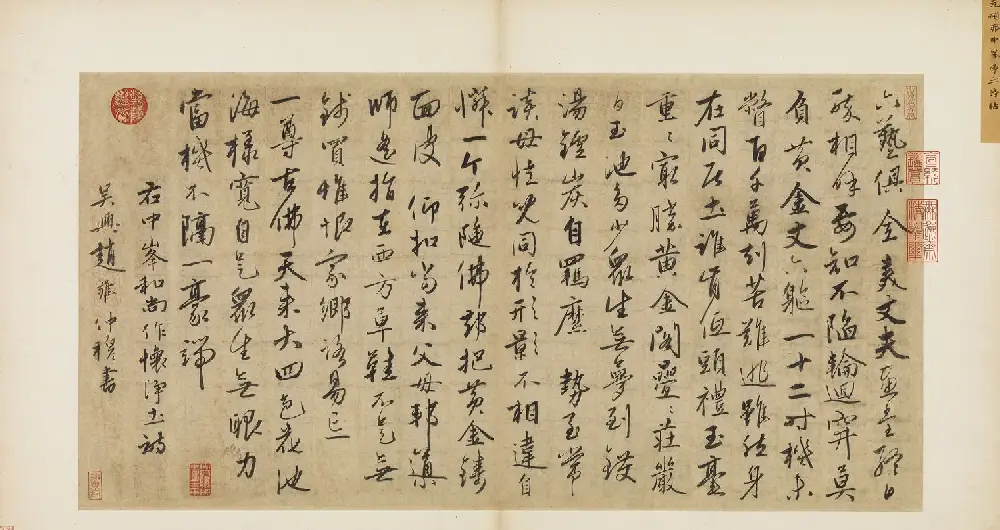 六藝俱全美丈夫畫堂終日
相要知不陷輪迴穽莫
負黃金丈六軀一十二时機未
瞥百千萬刼苦難逃雖然身
在同居土誰肯低頭禮玉毫
重〻窮勝黄金閣疊〻莊嚴
白玉池多少衆生無夢到鑊
湯鑪炭自羈縻 勢至常
談母憶兒同於形影不相違自
憐一个弥陁佛却把黄金鑄
面皮 仰扣當来父母邦
師遙指在西方草鞋不是無
錢買惟恨家鄉路易亡
一尊古佛天来大四色花池
海樣寬自是衆生無眼力
當機不隔一毫端
右中峯和尚作懷淨土詩
吳興趙雍仲穆書